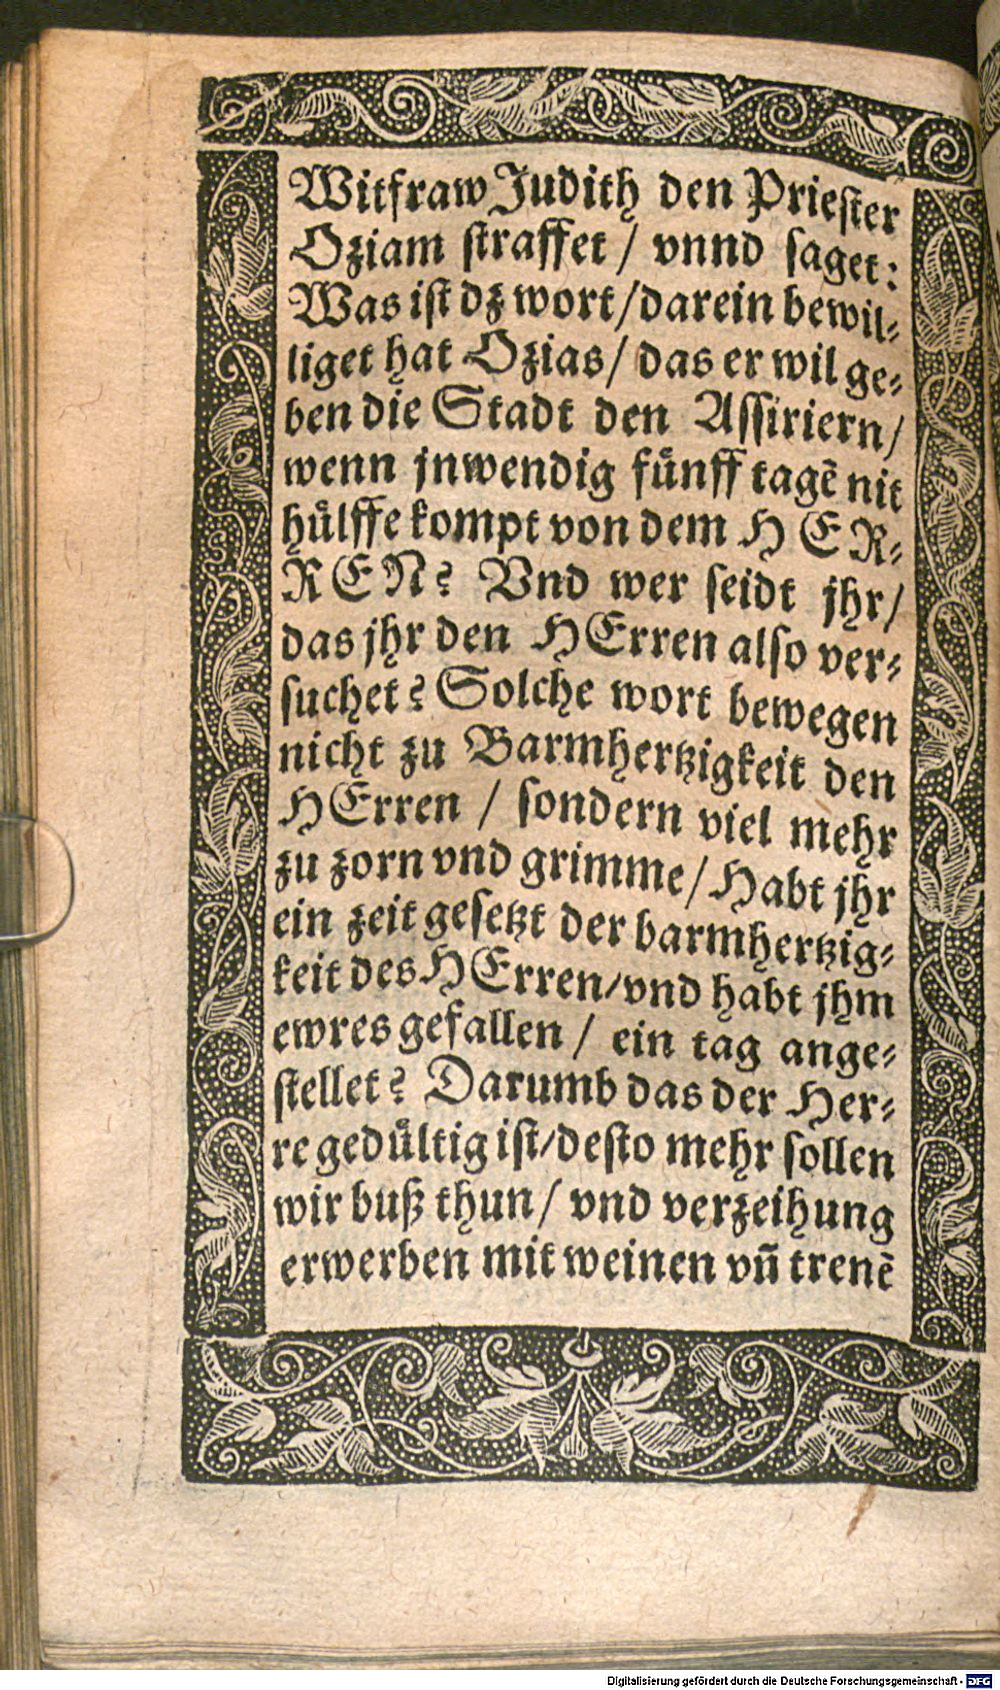 Witfraw Judith den Priester
Oziam straffet / vnnd saget:
Was ist dz wort / darein bewil⸗
liget hat Ozias / das er wil ge⸗
ben die Stadt den Assiriern /
wenn jnwendig fuͤnff tagē nit
huͤlffe kompt von dem HER⸗
REN? Vnd wer seidt jhr /
das jhr den HErren also ver⸗
suchet? Solche wort bewegen
nicht zu Barmhertzigkeit den
HErren / sondern viel mehr
zu zorn vnd grimme / Habt jhr
ein zeit gesetzt der barmhertzig⸗
keit des HErren / vnd habt jhm
ewres gefallen / ein tag ange⸗
stellet? Darumb das der Her⸗
re geduͤltig ist / desto mehr sollen
wir buß thun / vnd verzeihung
erwerben mit weinen vñ trenē
Digitalisierung gefördert durch die Deutsche Forschungsgemeinschaft - DFG